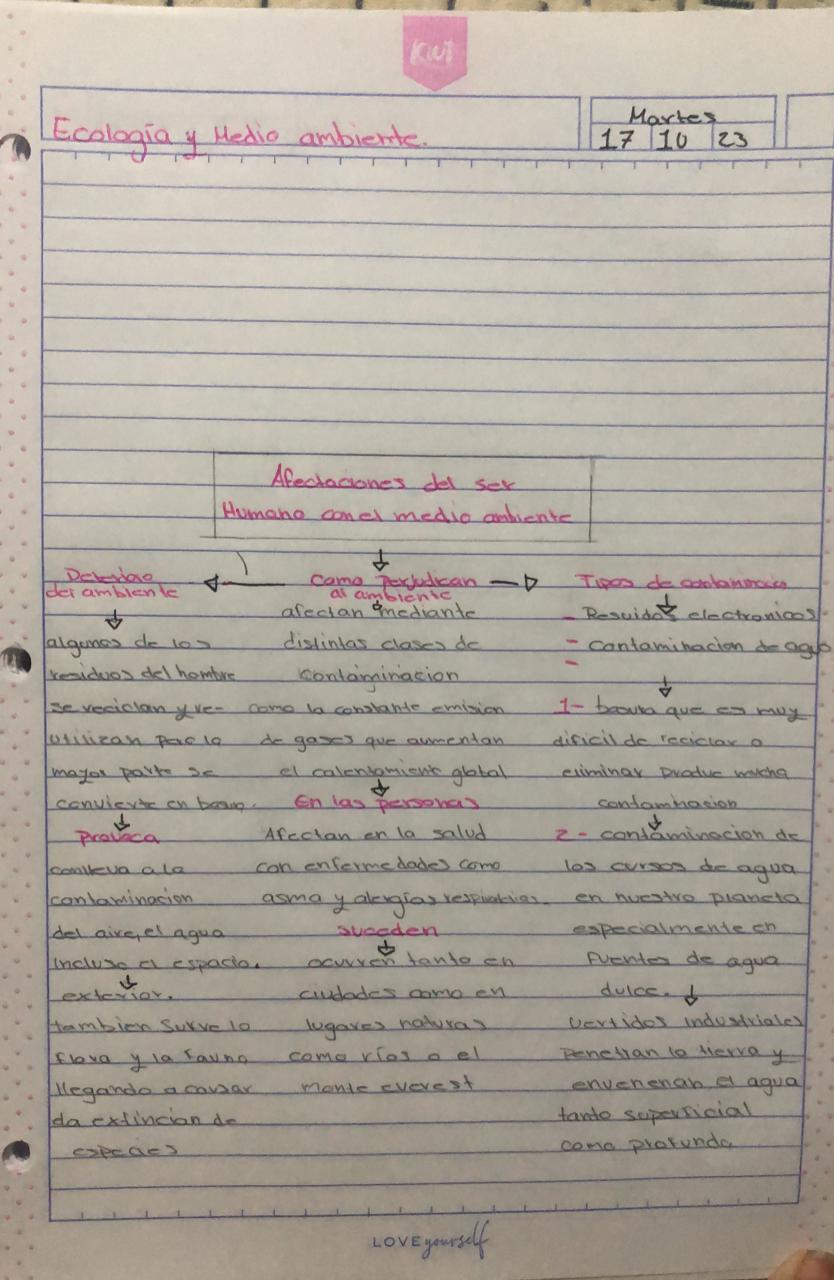 KWI
Ecología y Medio ambiente.
Martes
17 10 23
Afectaciones del ser
Humano con el medio ambiente
Deterioro
del ambiente
algunos de los
residuos del hombre
se reciclan y re-
utilizan pero la
mayor parte se
convierte en basura.
Provoca
conlleva a la
contaminacion
del aire, el agua
incluso el espacio.
exterior.
tambien surve la
flora y la fauna
llegando a causar
da extincion de
especies
Como Perjudican
al ambiente
afectan mediante
distintas clases de
contaminacion
como la constante emision
de gases que aumentan
el calentamiento global
En las personas
Afectan en la salud
con enfermedades como
asma y alergías respiratorias.
suceden
ocurren tanto en
ciudades como en
lugares naturas
como ríos o el
monte everest
Tipos de contaminacio
- Resuidos electronicos
- contaminacion de agua
-
1- basura que es muy
dificil de reciclar o
eliminar produc mucha
contaminacion
2- contaminacion de
los cursos de agua
en nuestro planeta
especialmente en
fuentes de agua
dulce.
vertidos industriales
penetran la tierra y
envenenan el agua
tanto superficial
como profunda
LOVE yourself